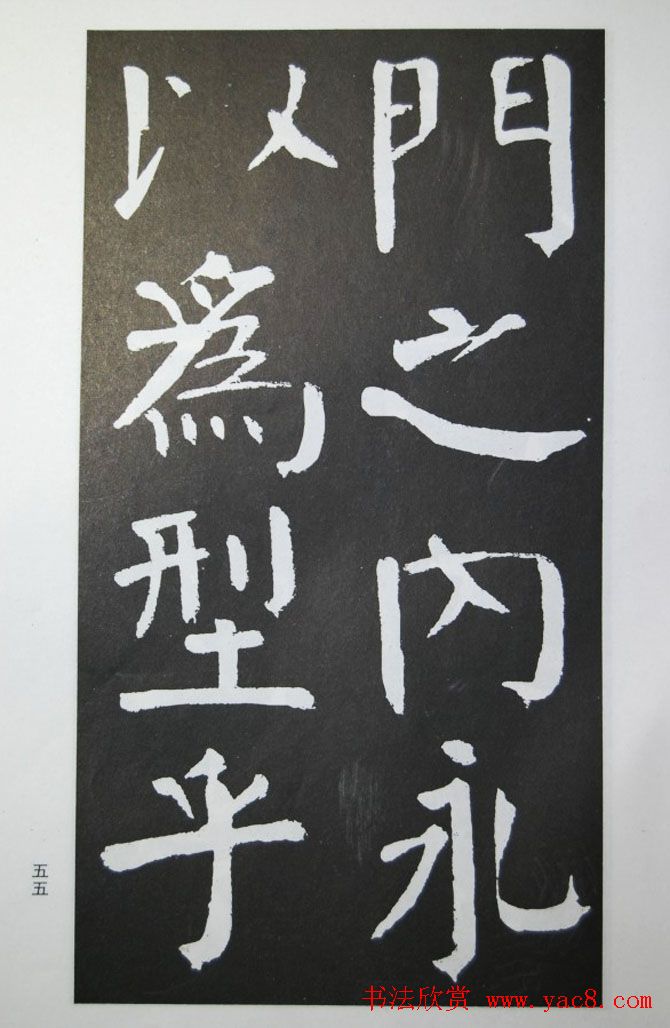 門之內永
以爲型乎
五五
书法欣赏 www.yac8.com